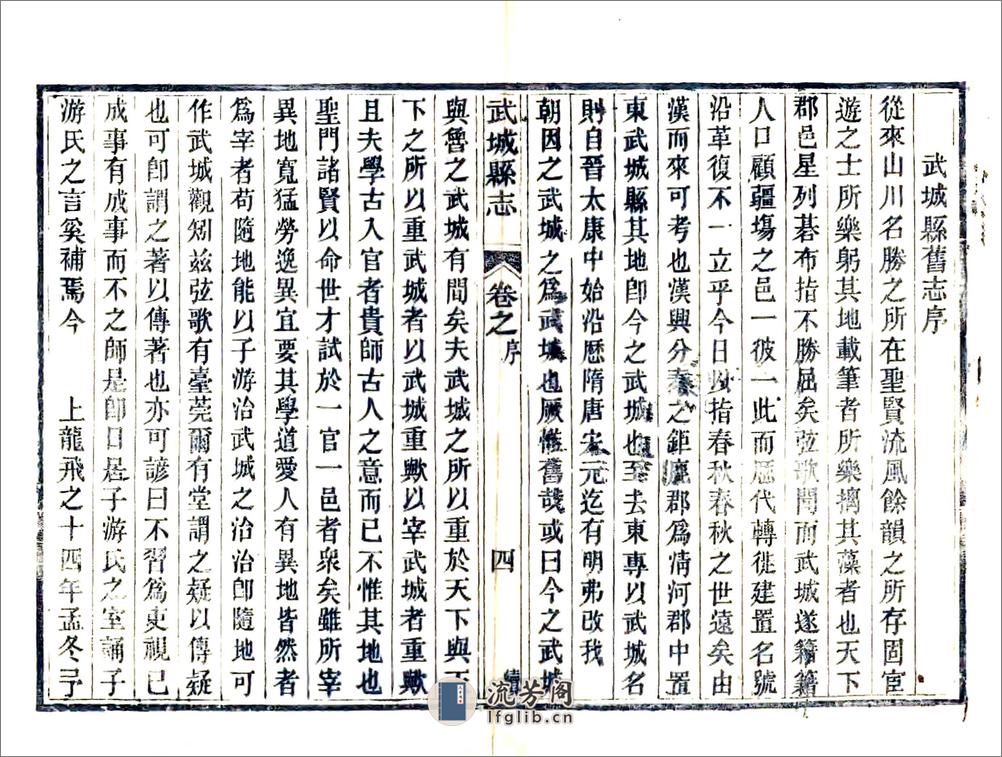 武城縣舊志序
從來山川名勝之所在聖賢流風餘韻之所存固宦
遊之士所樂躬其地載筆者所樂摛其藻者也天下
郡邑星列碁布指不勝屈矣弦歌聞而武城遂籍籍
人口顧疆塲之邑一彼一此而歷代轉徙建置名號
沿革復不一立乎今日以指春秋春秋之世遠矣由
漢而來可考也漢興分秦之鉅鹿郡爲淸河郡中置
東武城縣其地卽今之武城也至去東專以武城名
則自晉太康中始沿歷隋唐宋元迄有明弗改我
朝因之武城之爲武城也厥惟舊哉或曰今之武城
武城縣志
卷之
序
四
續
與魯之武城有間矣夫武城之所以重於天下與天
下之所以重武城者以武城重歟以宰武城者重歟
且夫學古入官者貴師古人之意而已不惟其地也
聖門諸賢以命世才試於一官一邑者衆矣雖所宰
異地寬猛勞逸異宜要其學道愛人有異地皆然者
爲宰者苟隨地能以子游治武城之治治卽隨地可
作武城觀矧兹弦歌有臺莞爾有堂謂之疑以傳疑
也可卽謂之著以傳著也亦可諺曰不習爲吏視已
成事有成事而不之師是卽日居子游氏之室誦子
游氏之言奚補焉今 上龍飛之十四年孟冬予
流芳阁
lfglib.cn